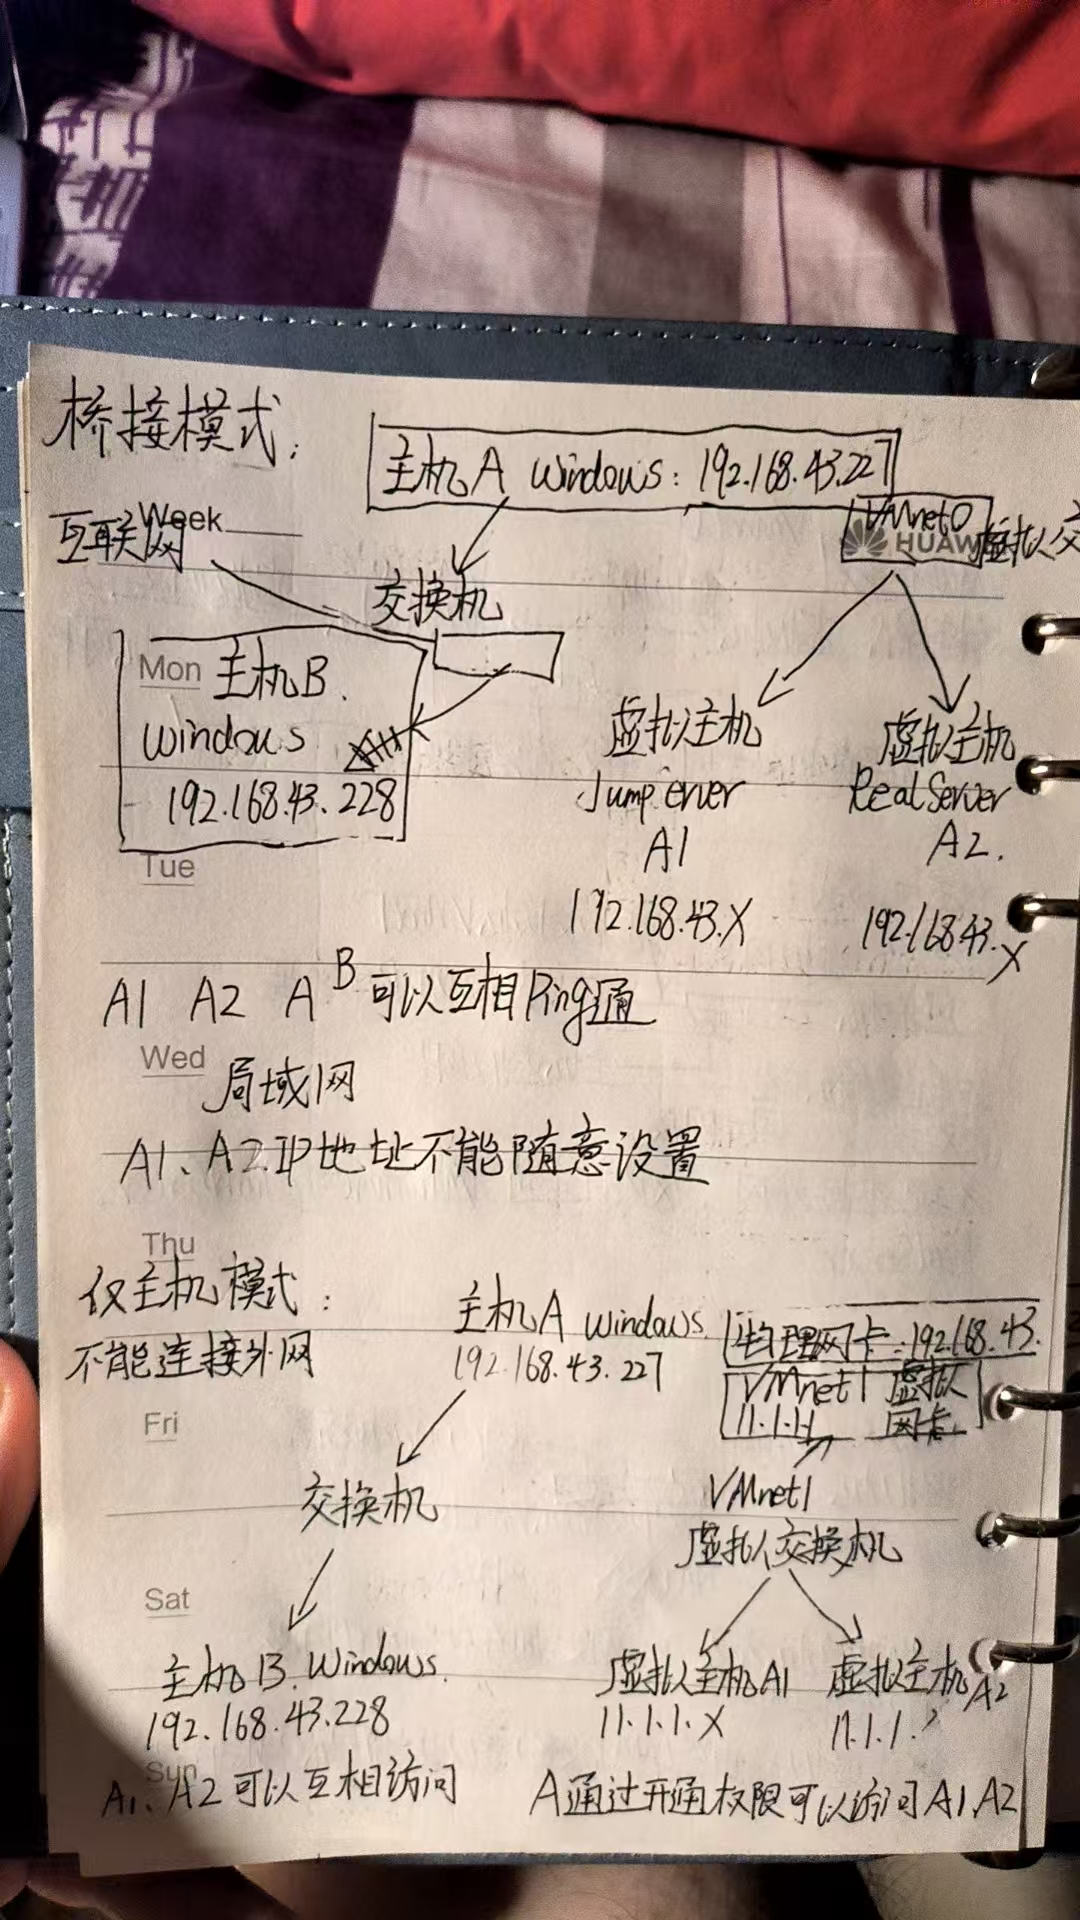 桥接模式:
主机A Windows: 192.168.43.227
Week
互联网
VMnet0
HUAW
虚拟交
交换机
Mon
主机B.
windows
192.168.43.228
虚拟主机
Jump erver
A1
192.168.43.X
虚拟主机
RealServer
A2.
192.168.43.X
Tue
A1 A2 A B 可以互相Ping通
Wed
局域网
A1、A2.IP地址不能随意设置
Thu
仅主机模式:
不能连接外网
主机A windows
192.168.43.227
物理网卡:192.168.43.
VMnet1 虚拟
11.1.1.1 网卡
Fri
交换机
VMnet1
虚拟交换机
Sat
主机B.Windows.
192.168.43.228
虚拟主机A1
11.1.1.X
虚拟主机A2
11.1.1.
Sun
A1、A2可以互相访问
A通过开通权限可以访问A1.A2